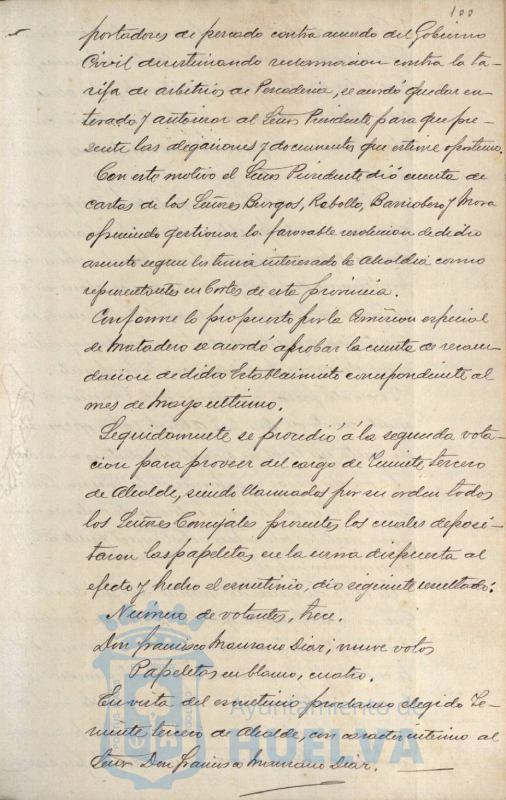 100
portadores de pescado contra acuerdo del Gobierno
Civil desestimando reclamacion contra la ta-
rifa de arbitrios de Pescaderia, se acordó quedar en-
terado y autorizar al Señor Presidente para que pre-
sente las alegaciones y documentos que estime oportuno.
Con este motivo el Señor Presidente dió cuenta de
cartas de los Señores Burgos, Rebollo, Barriobero y Mora
ofreciendo gestionar la favorable resolucion de dicho
asunto segun les tenia interesado la Alcaldia como
representantes en Cortes de esta provincia.
Conforme lo propuesto por la Comision especial
de Matadero se acordó aprobar la cuenta de recau-
dacion de dicho Establecimiento correspondiente al
mes de Mayo ultimo.
Seguidamente se procedió á la segunda vota-
cion para proveer del cargo de Teniente tercero
de Alcalde, siendo llamados por su orden todos
los Señores Concejales presentes, los cuales deposi-
taron las papeletas en la urna dispuesta al
efecto y hecho el escrutinio, dio siguiente resultado:
Número de votantes, trece.
Don Francisco Manzano Diaz; nueve votos
Papeletas en blanco, cuatro.
En vista del escrutinio proclamo elegido Te-
niente tercero de Alcalde, con caracter interino al
Señor Don Francisco Manzano Diaz.
Ayuntamiento de
HUELVA